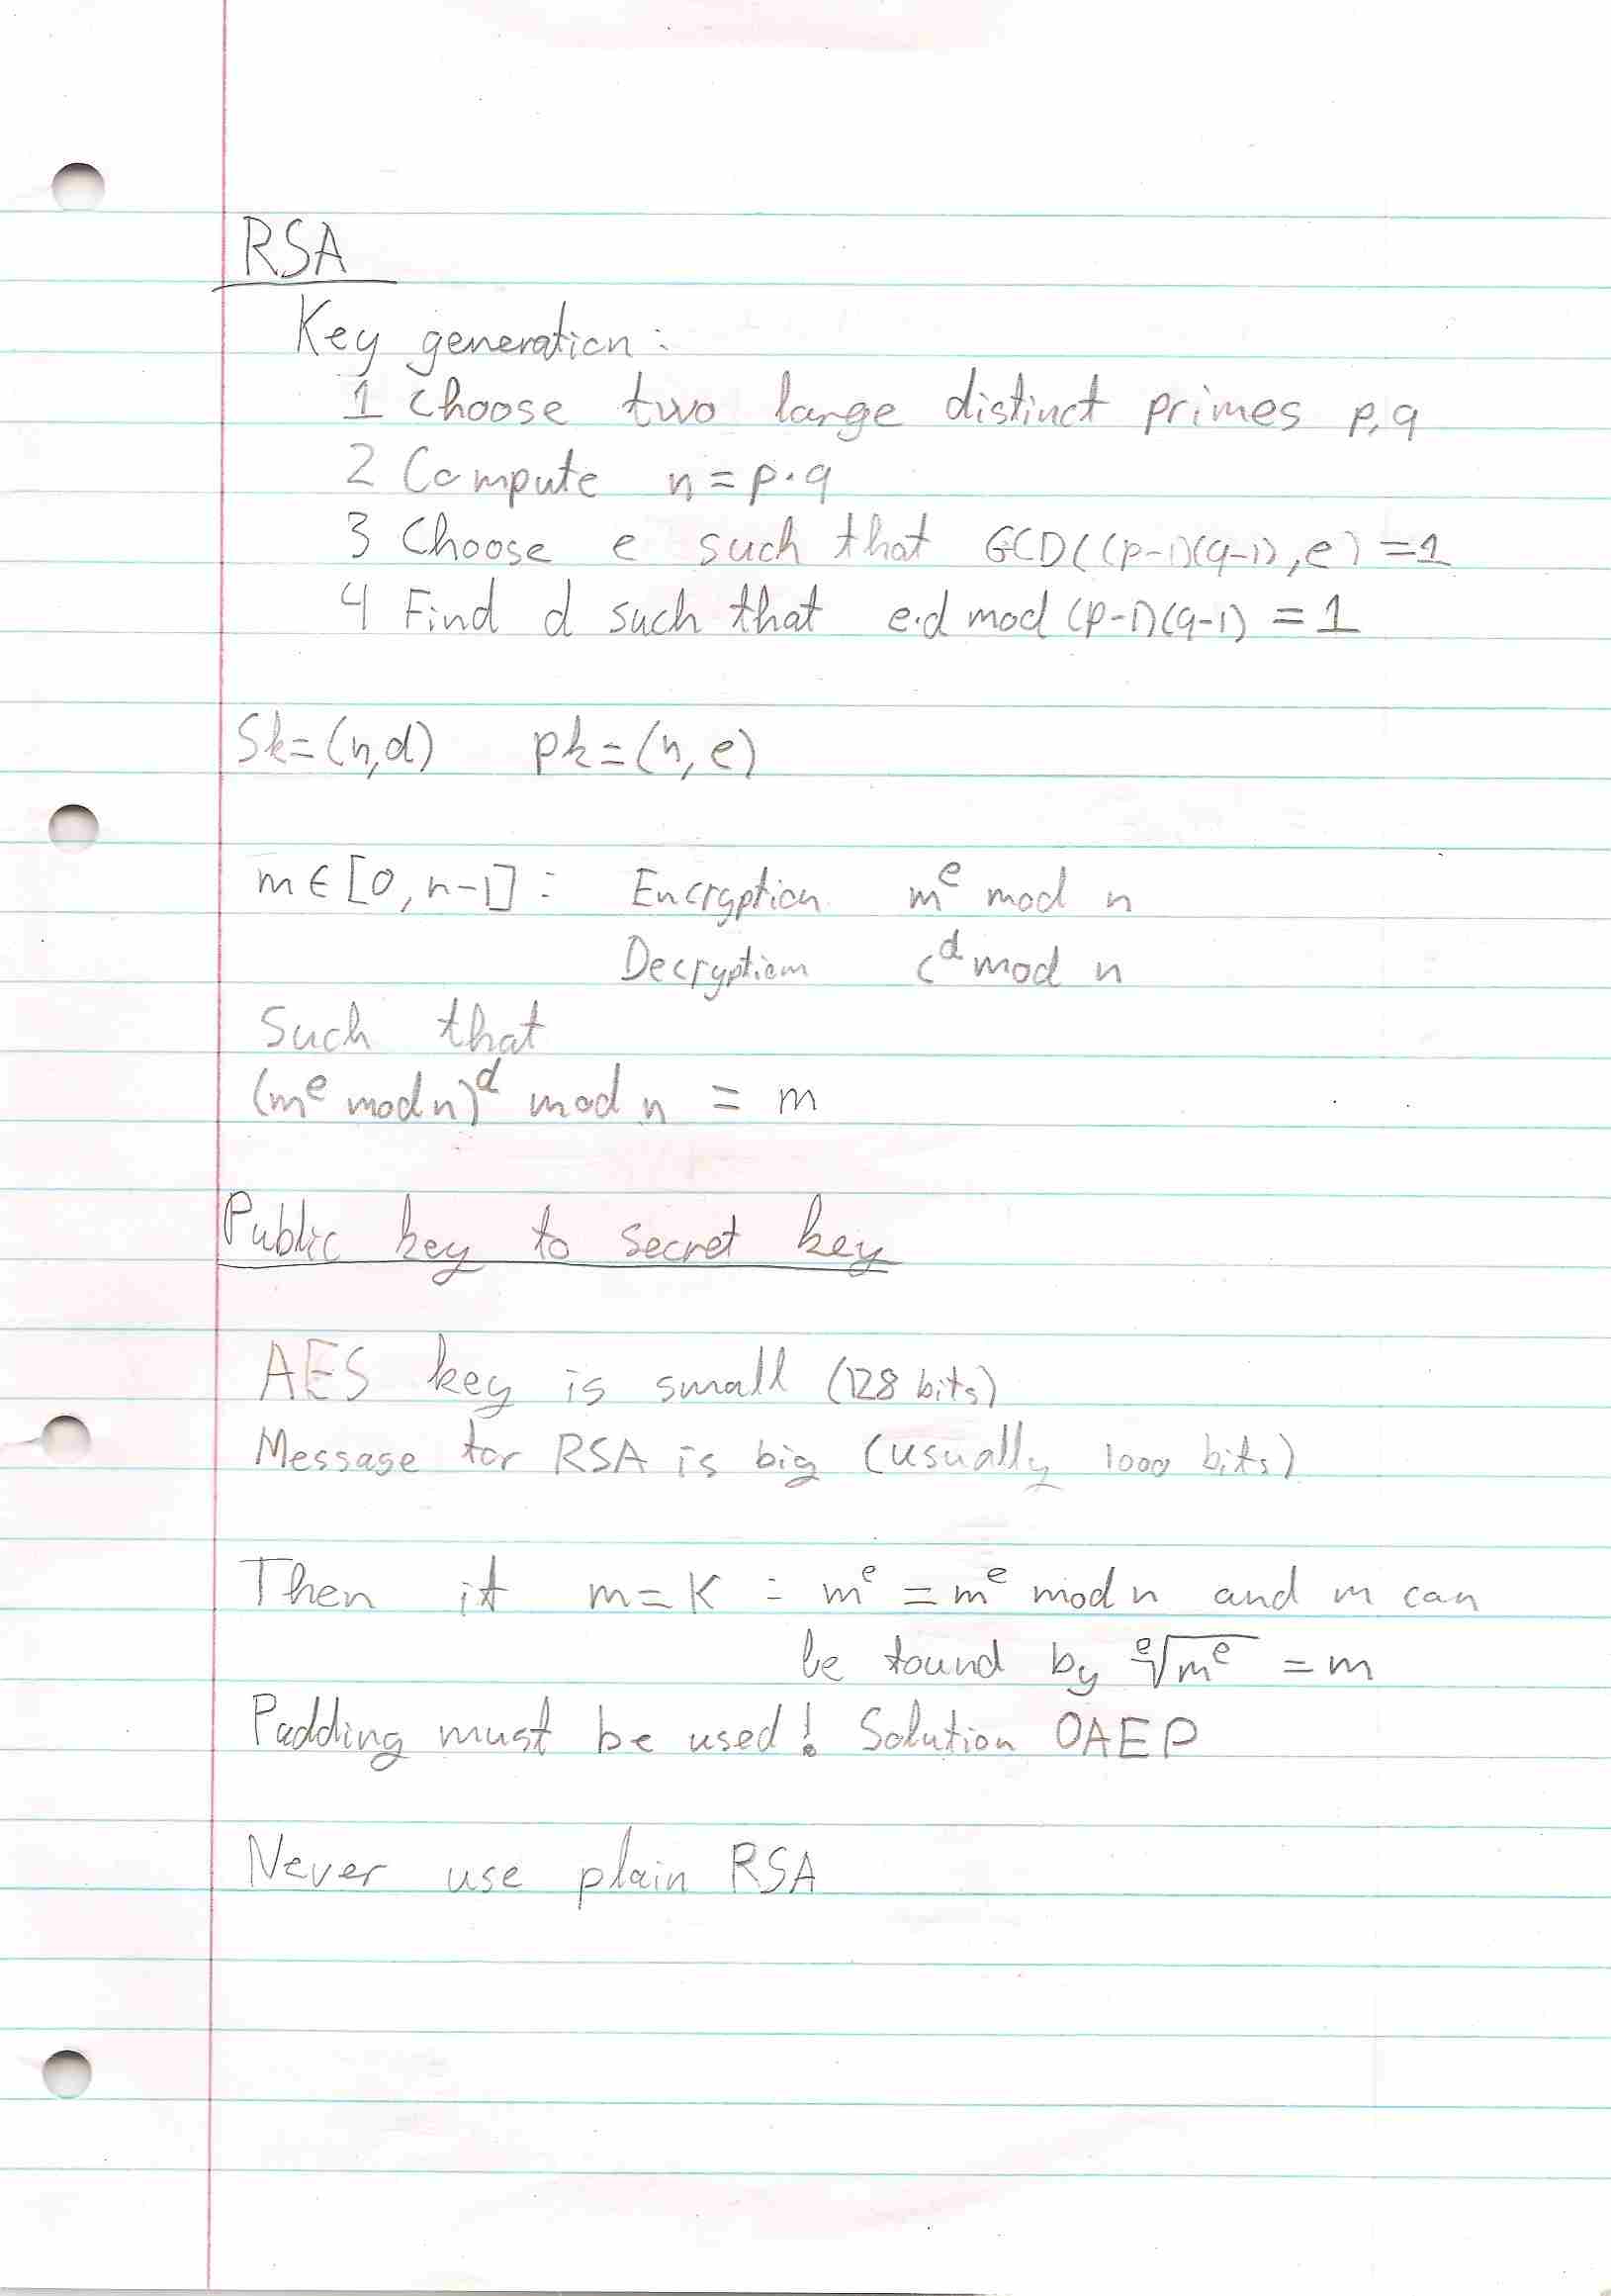 RSA
Key generation:
1 Choose two large distinct primes p,q
2 Compute n=p·q
3 Choose e such that GCD((p-1)(q-1),e)=1
4 Find d such that e·d mod (p-1)(q-1) = 1
Sk=(n,d) pk=(n,e)
m∈[0,n-1]: Encryption m^e mod n
Decryption c^d mod n
Such that
(m^e mod n)^d mod n = m
Public key to secret key
AES key is small (128 bits)
Message for RSA is big (usually 1000 bits)
Then if m=K : m^e = m^e mod n and m can
be found by ᵉ√m^e = m
Padding must be used! Solution OAEP
Never use plain RSA